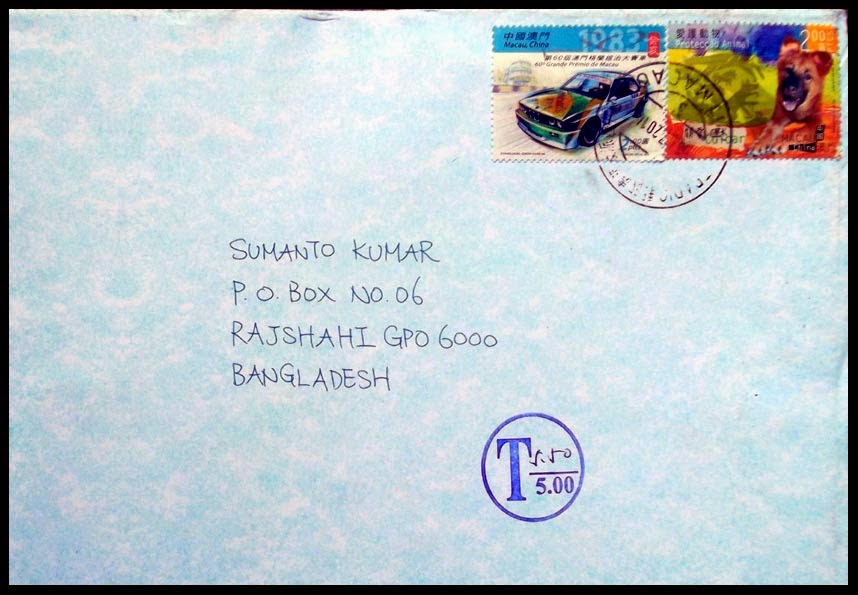 中國澳門
Macau, China
1983
第60屆澳門格蘭披治大賽車
60º Grande Prémio de Macau
愛護動物
Protecção Animal
2.00
MACAU
SUMANTO KUMAR
P.O. BOX NO. 06
RAJSHAHI GPO 6000
BANGLADESH
T 5.50
5.00